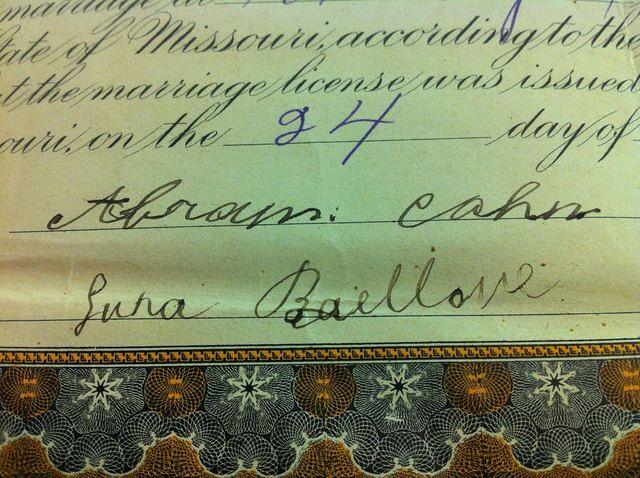 marriage at
State of Missouri, according to the
t the marriage license was issued
ouri, on the 24 day of
Abram: Cohn